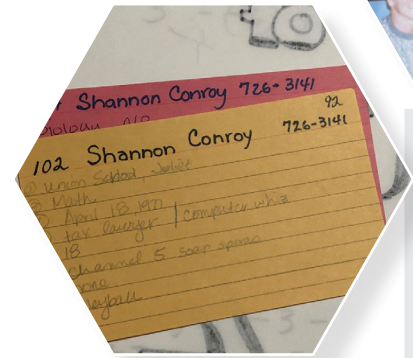 Shannon Conroy 726-3141
92
102 Shannon Conroy 726-3141
Union School, Joliet
Math
April 18, 1971
tax lawyer | computer whiz
18
channel 5 soap operas